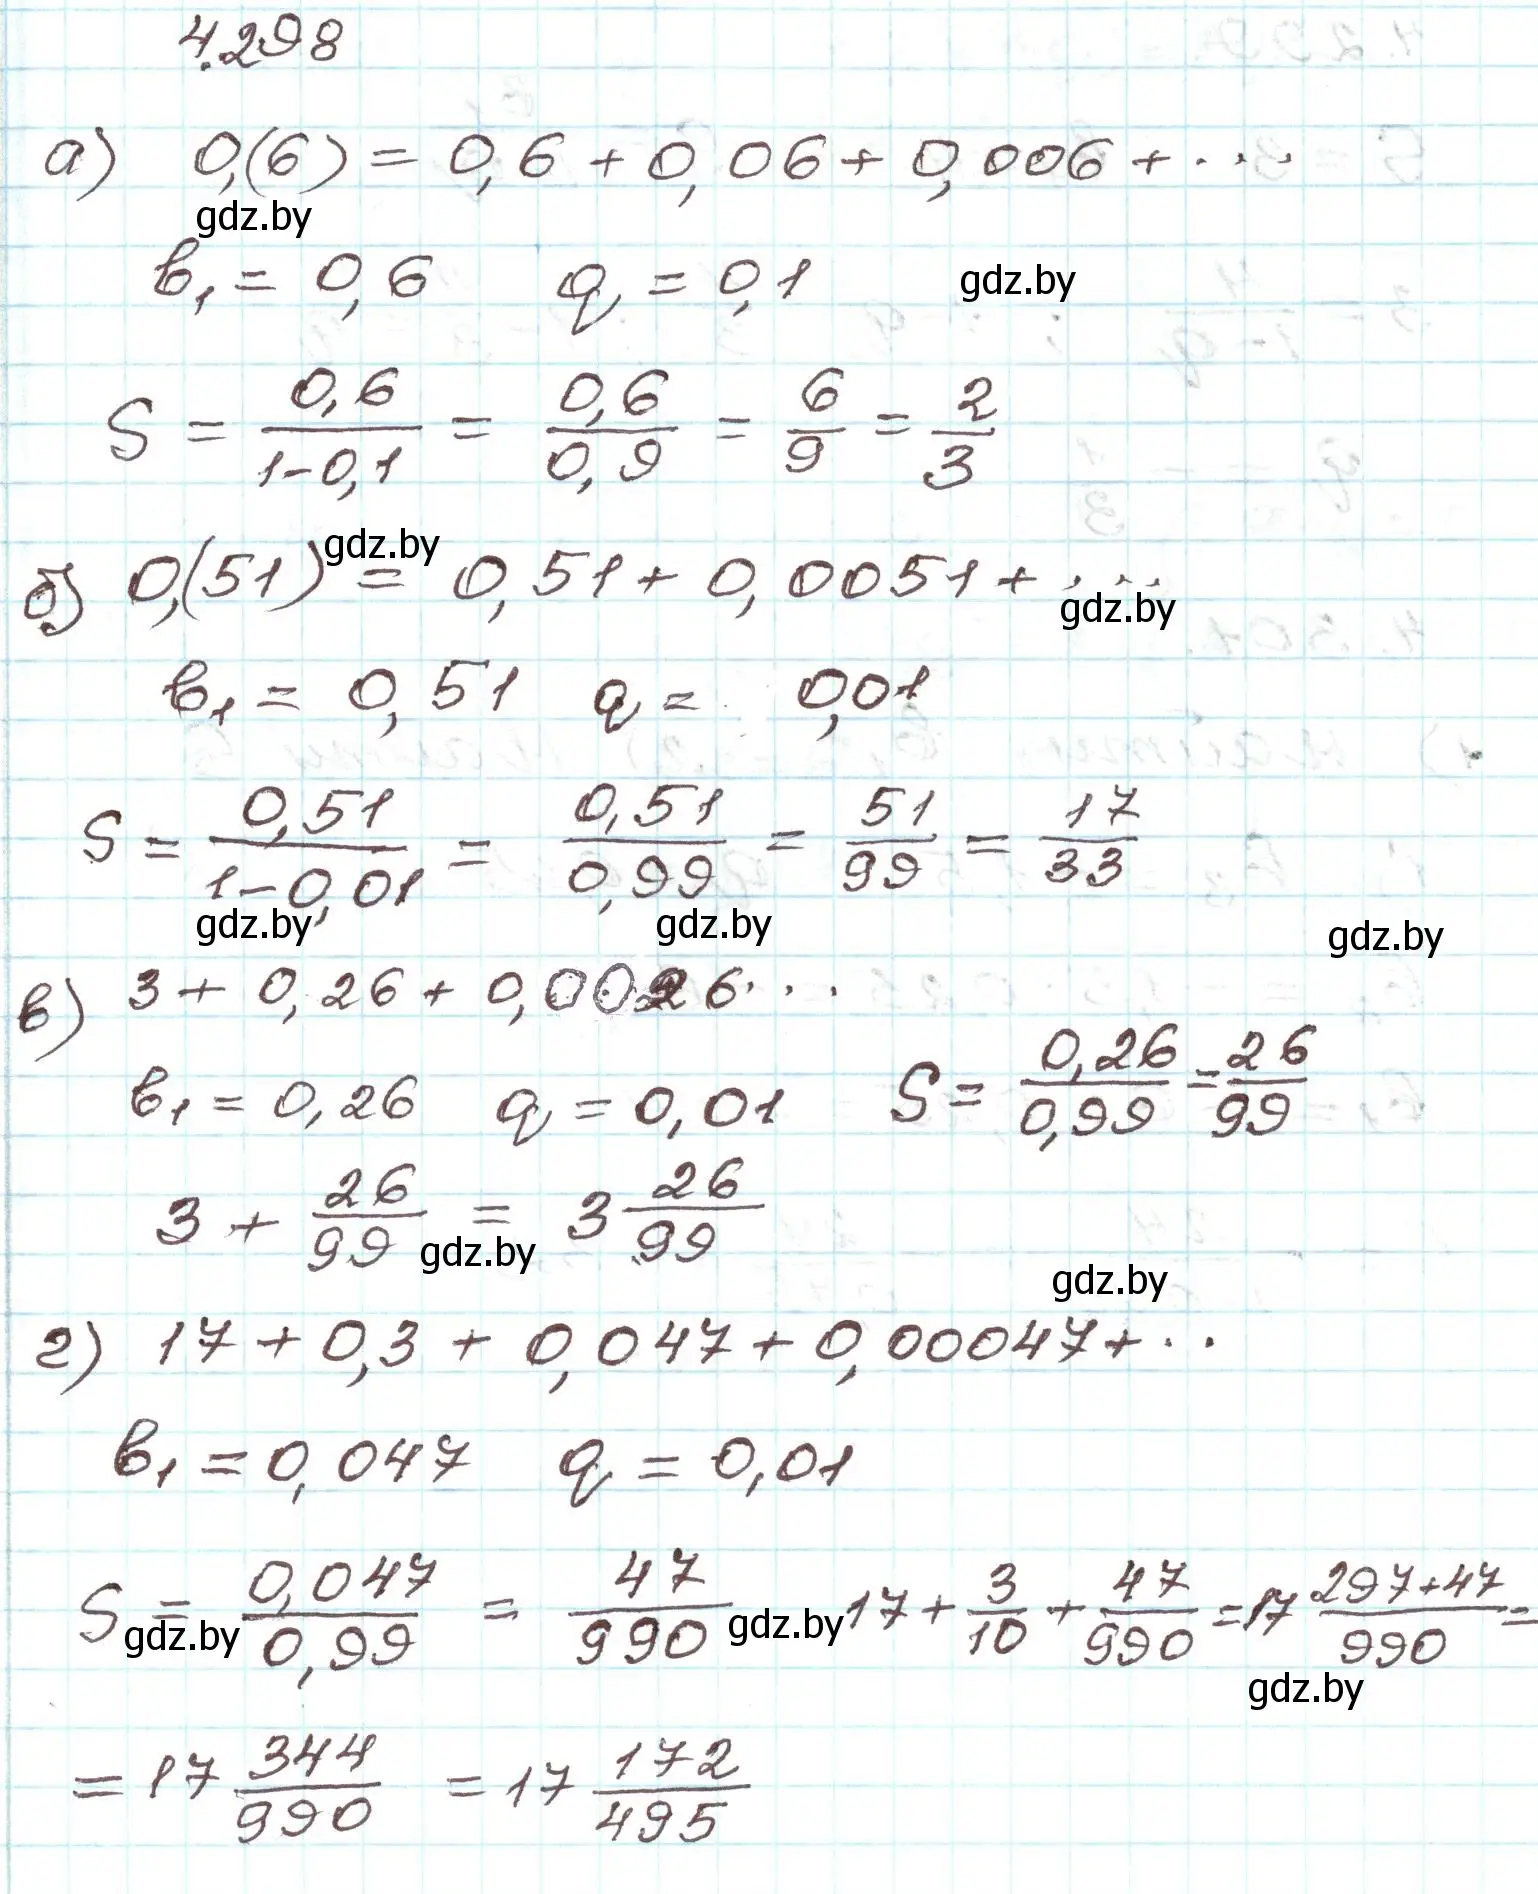 4.298
а) 0,(6) = 0,6 + 0,06 + 0,006 + ...
gdz.by
b₁ = 0,6 q = 0,1 gdz.by
S = 0,6/(1-0,1) = 0,6/0,9 = 6/9 = 2/3
gdz.by
б) 0,(51) = 0,51 + 0,0051 + ...
gdz.by
b₁ = 0,51 q = 0,01
S = 0,51/(1-0,01) = 0,51/0,99 = 51/99 = 17/33
gdz.by gdz.by gdz.by
в) 3 + 0,26 + 0,0026...
b₁ = 0,26 q = 0,01 S = 0,26/0,99 = 26/99
3 + 26/99 = 3 26/99
gdz.by gdz.by
г) 17 + 0,3 + 0,047 + 0,00047 + ...
b₁ = 0,047 q = 0,01
S = 0,047/0,99 = 47/990 17 + 3/10 + 47/990 = 17 (297+47)/990 =
gdz.by gdz.by gdz.by
= 17 344/990 = 17 172/495